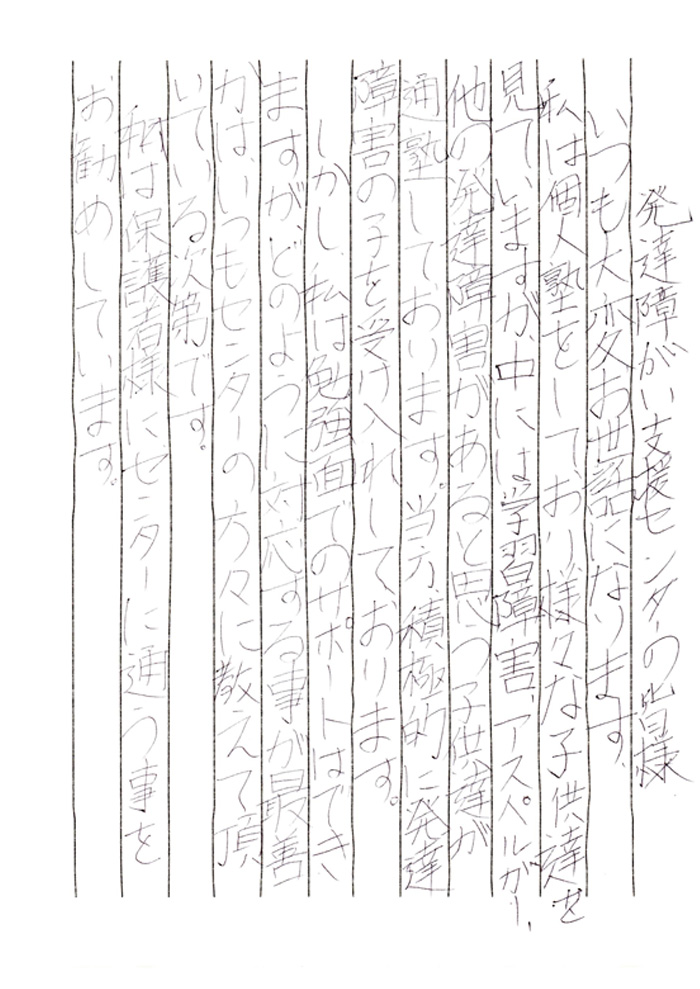 発達障がい支援センターの皆様
いつも大変お世話になります。
私は個人塾をしており様々な子供達を
見ていますが、中には学習障害、アスペルガー、
他の発達障害があると思う子供達が
通塾しております。当方、積極的に発達
障害の子を受け入れしております。
しかし、私は勉強面でのサポートはでき
ますが、どのように対応する事が最善
かは、いつもセンターの方々に教えて頂
いている次第です。
私は保護者様にセンターに通う事を
お勧めしています。